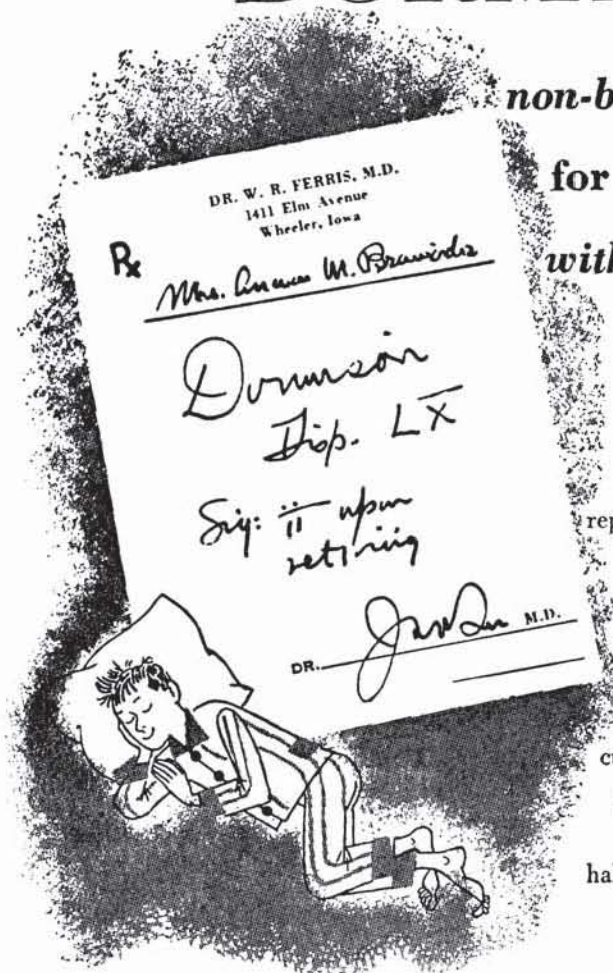 non-b
for
with
DR. W. R. FERRIS, M.D.
1411 Elm Avenue
Wheeler, Iowa
Rx
Mrs. M.
Dormison
Disp. LX
Sig: ii upon
retiring
DR. M.D.
rep
ha